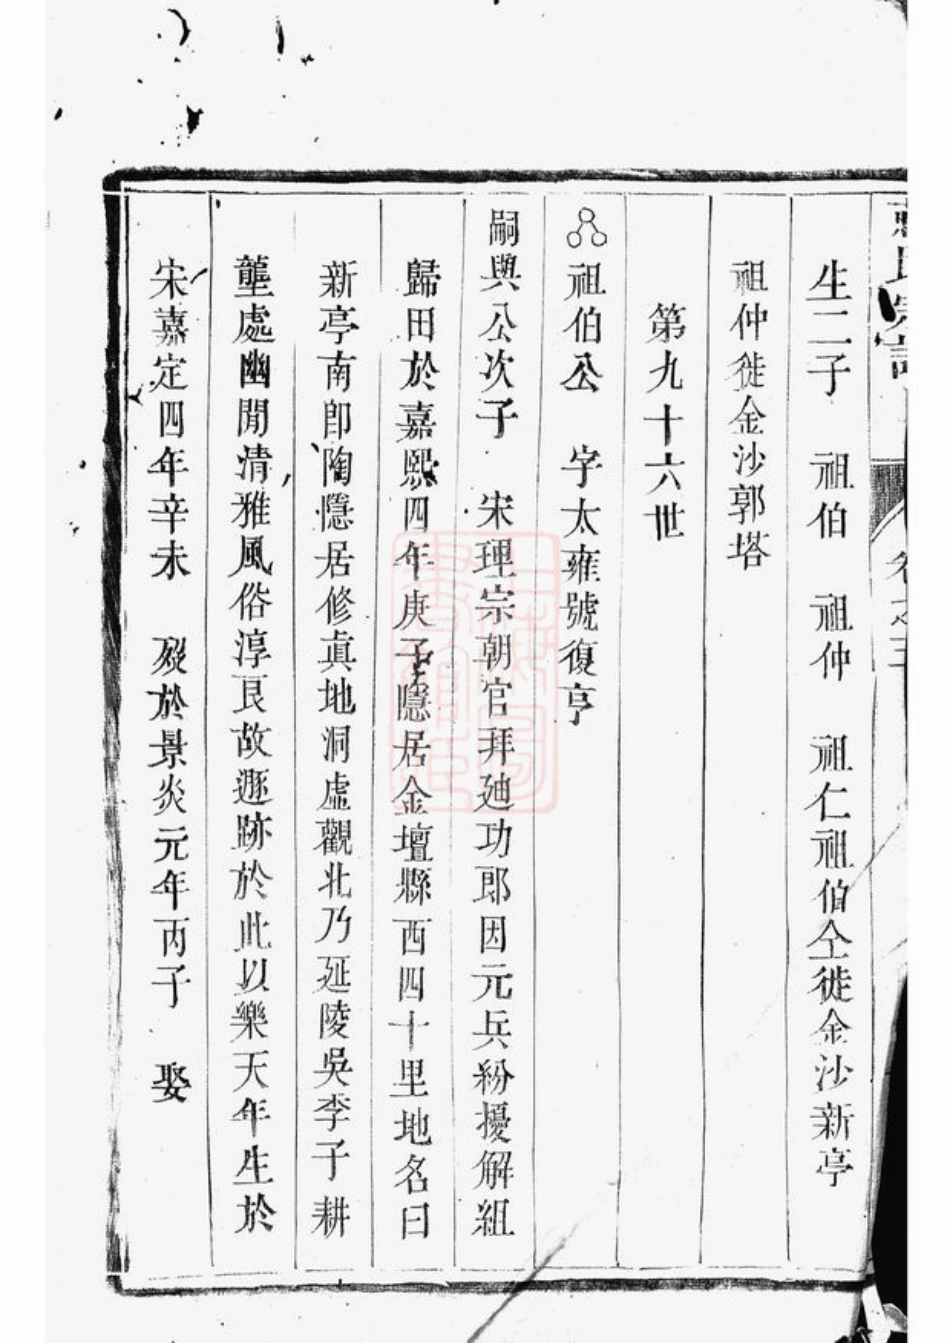 氏宗譜 卷之五
生二子 祖伯 祖仲 祖仁祖伯仝徙金沙新亭
祖仲徙金沙郭塔
第九十六世
祖伯公 字太雍號復亨
嗣與公次子 宋理宗朝官拜廸功郎因元兵紛擾解組
歸田於嘉熙四年庚子隱居金壇縣西四十里地名曰
新亭南卽陶隱居修眞地洞虛觀北乃延陵吳季子耕
壟處幽閒清雅風俗淳良故遯跡於此以樂天年生於
宋嘉定四年辛未 歿於景炎元年丙子 娶